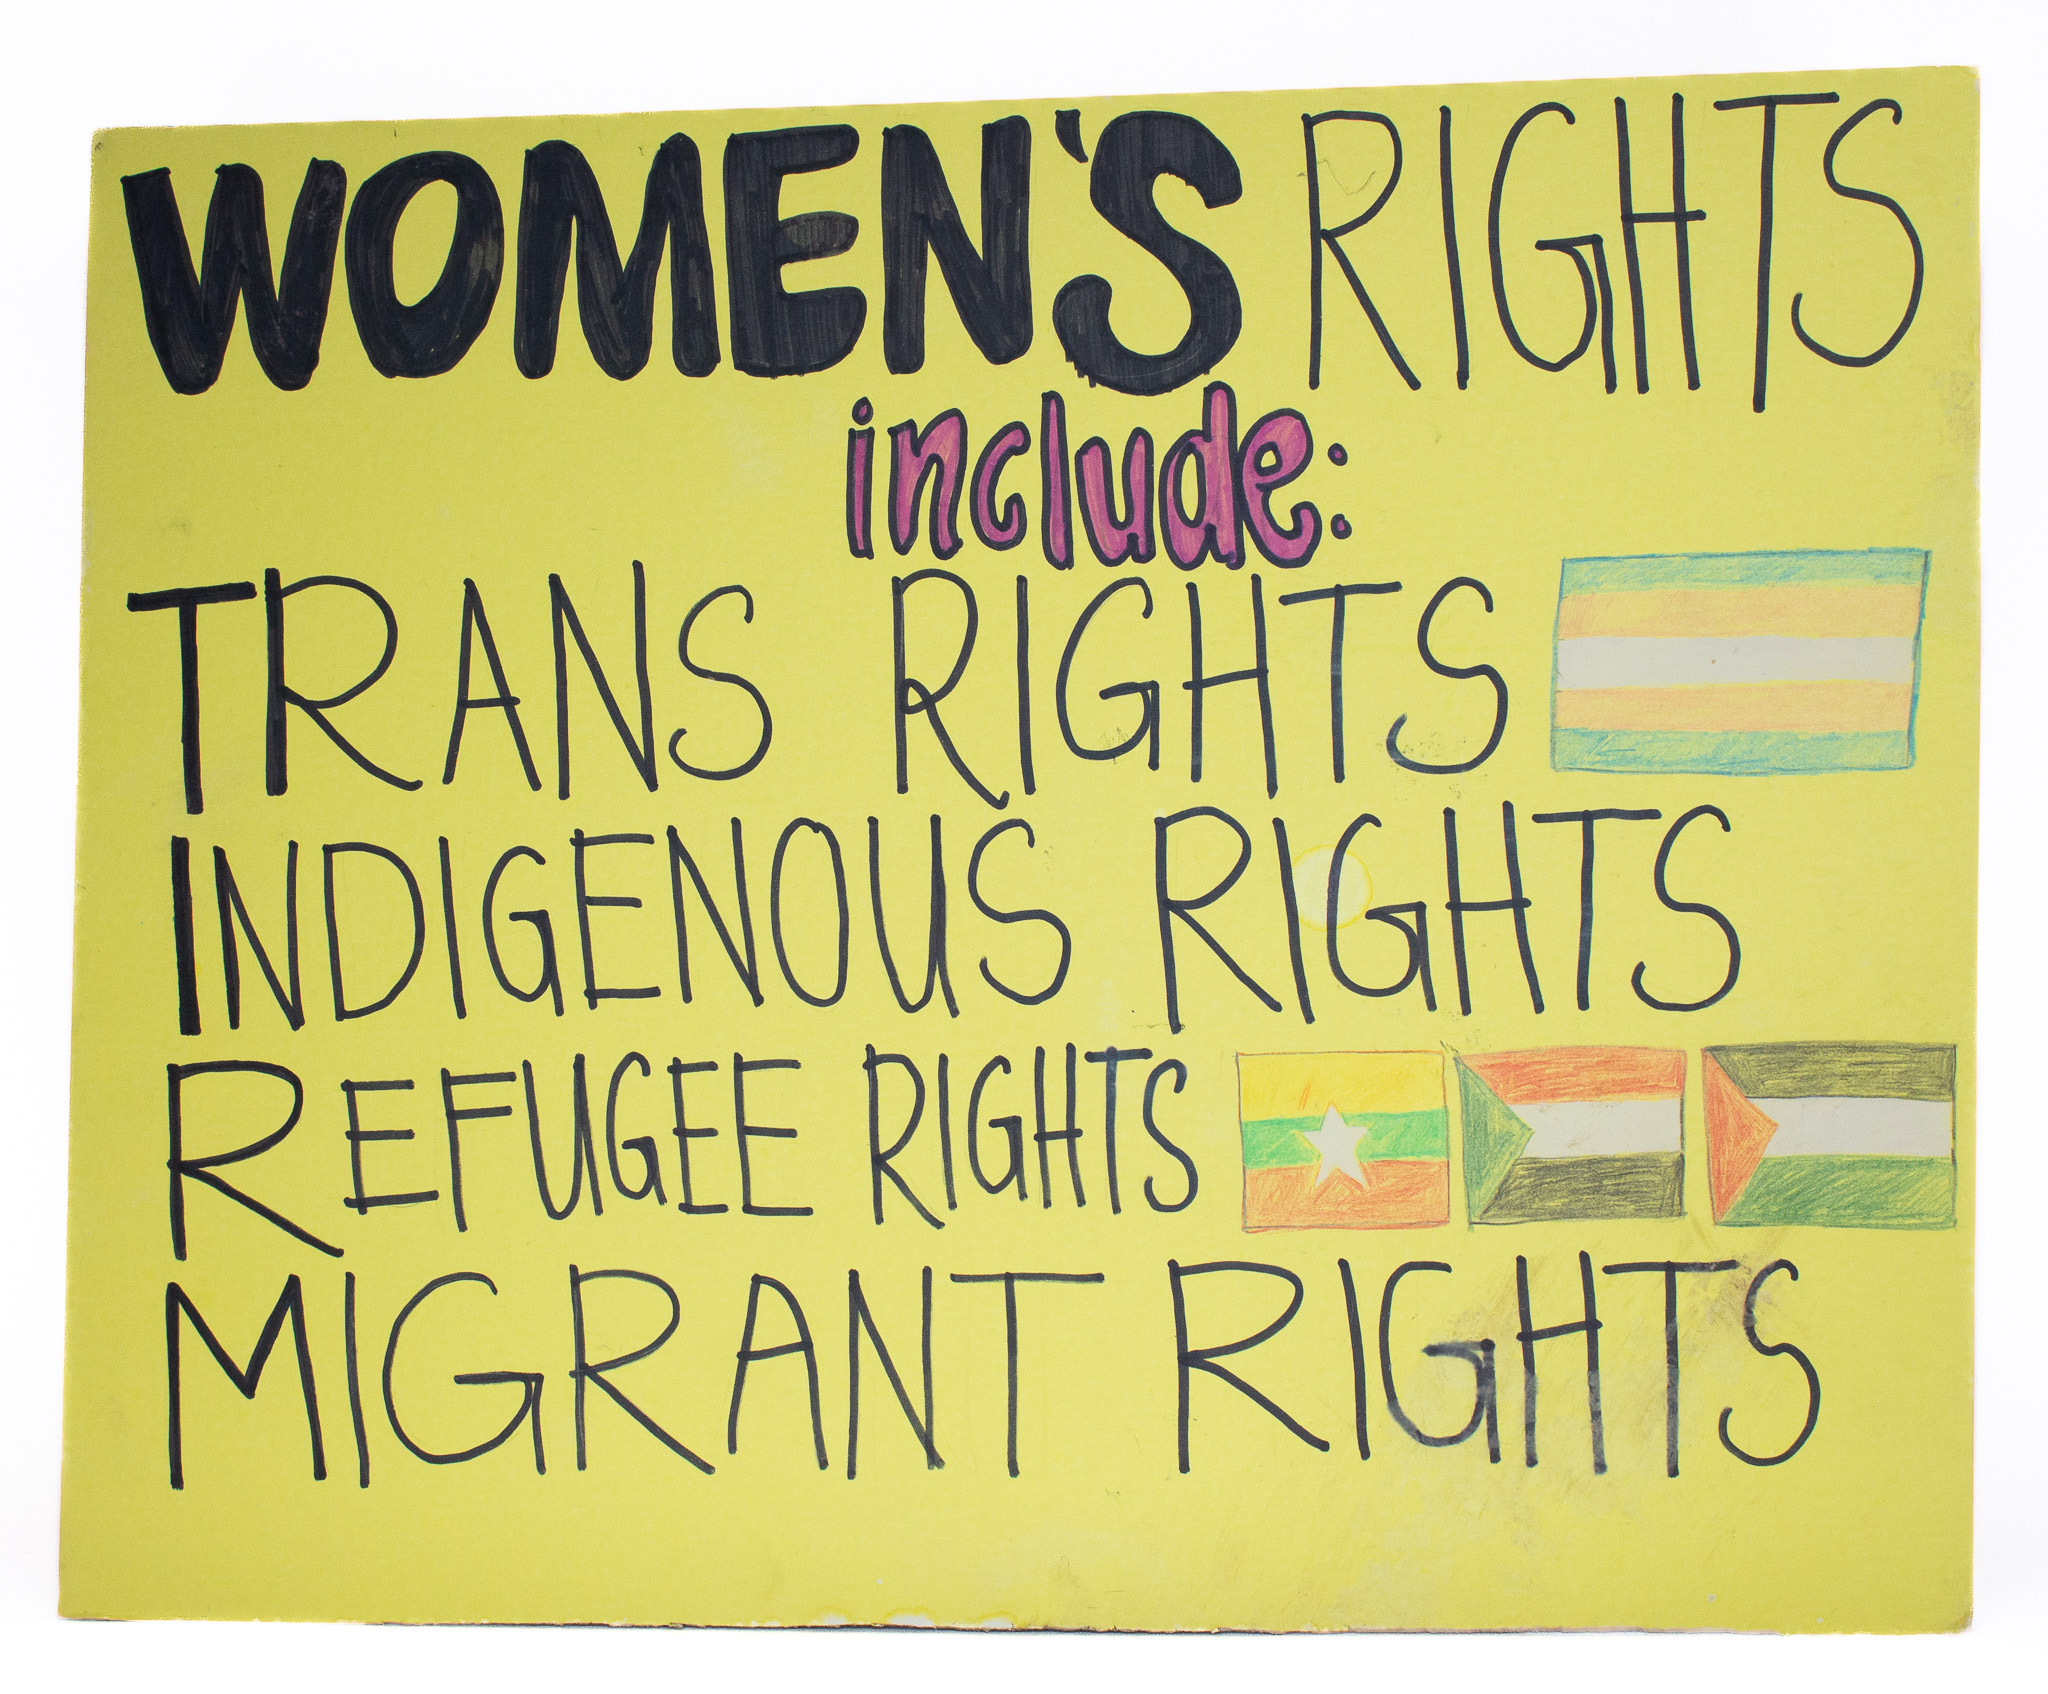 WOMEN'S RIGHTS
include:
TRANS RIGHTS
INDIGENOUS RIGHTS
REFUGEE RIGHTS
MIGRANT RIGHTS